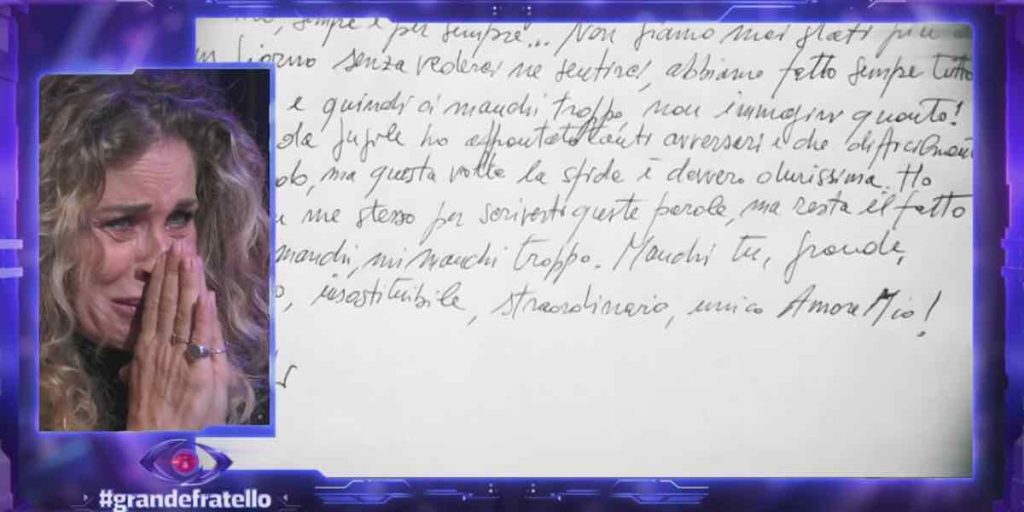 sempre e per sempre... Non siamo mai stati più di
un giorno senza vederci ne sentirci, abbiamo fatto sempre tutto
e quindi ci manchi troppo, non immagini quanto!
ho affrontato tanti avversari e che difficilmente
ma questa volta la sfida è davvero durissima. Ho
me stesso per scriverti queste parole, ma resta il fatto
manchi, mi manchi troppo. Manchi tu, grande,
insostituibile, straordinario, unico Amore Mio!
#grandefratello